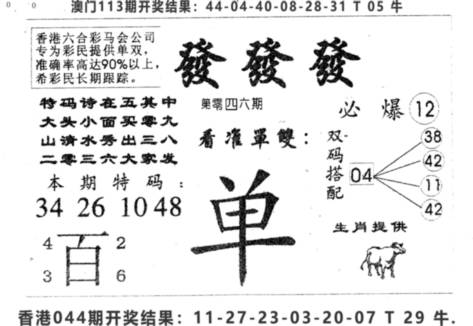 澳门113期开奖结果：44-04-40-08-28-31 T 05 牛
香港六合彩马会公司
专为彩民提供单双,
准确率高达90%以上,
希彩民长期跟踪。
發 發 發
特码诗在五其中
大头小面买零九
山清水秀出三八
二零三六大家发
第零四六期
看准單雙：
必 爆 12
双码搭配
04
38
42
11
42
本期特码：
34 26 10 48
单
生肖提供
4 2
百
3 6
香港044期开奖结果：11-27-23-03-20-07 T 29 牛.